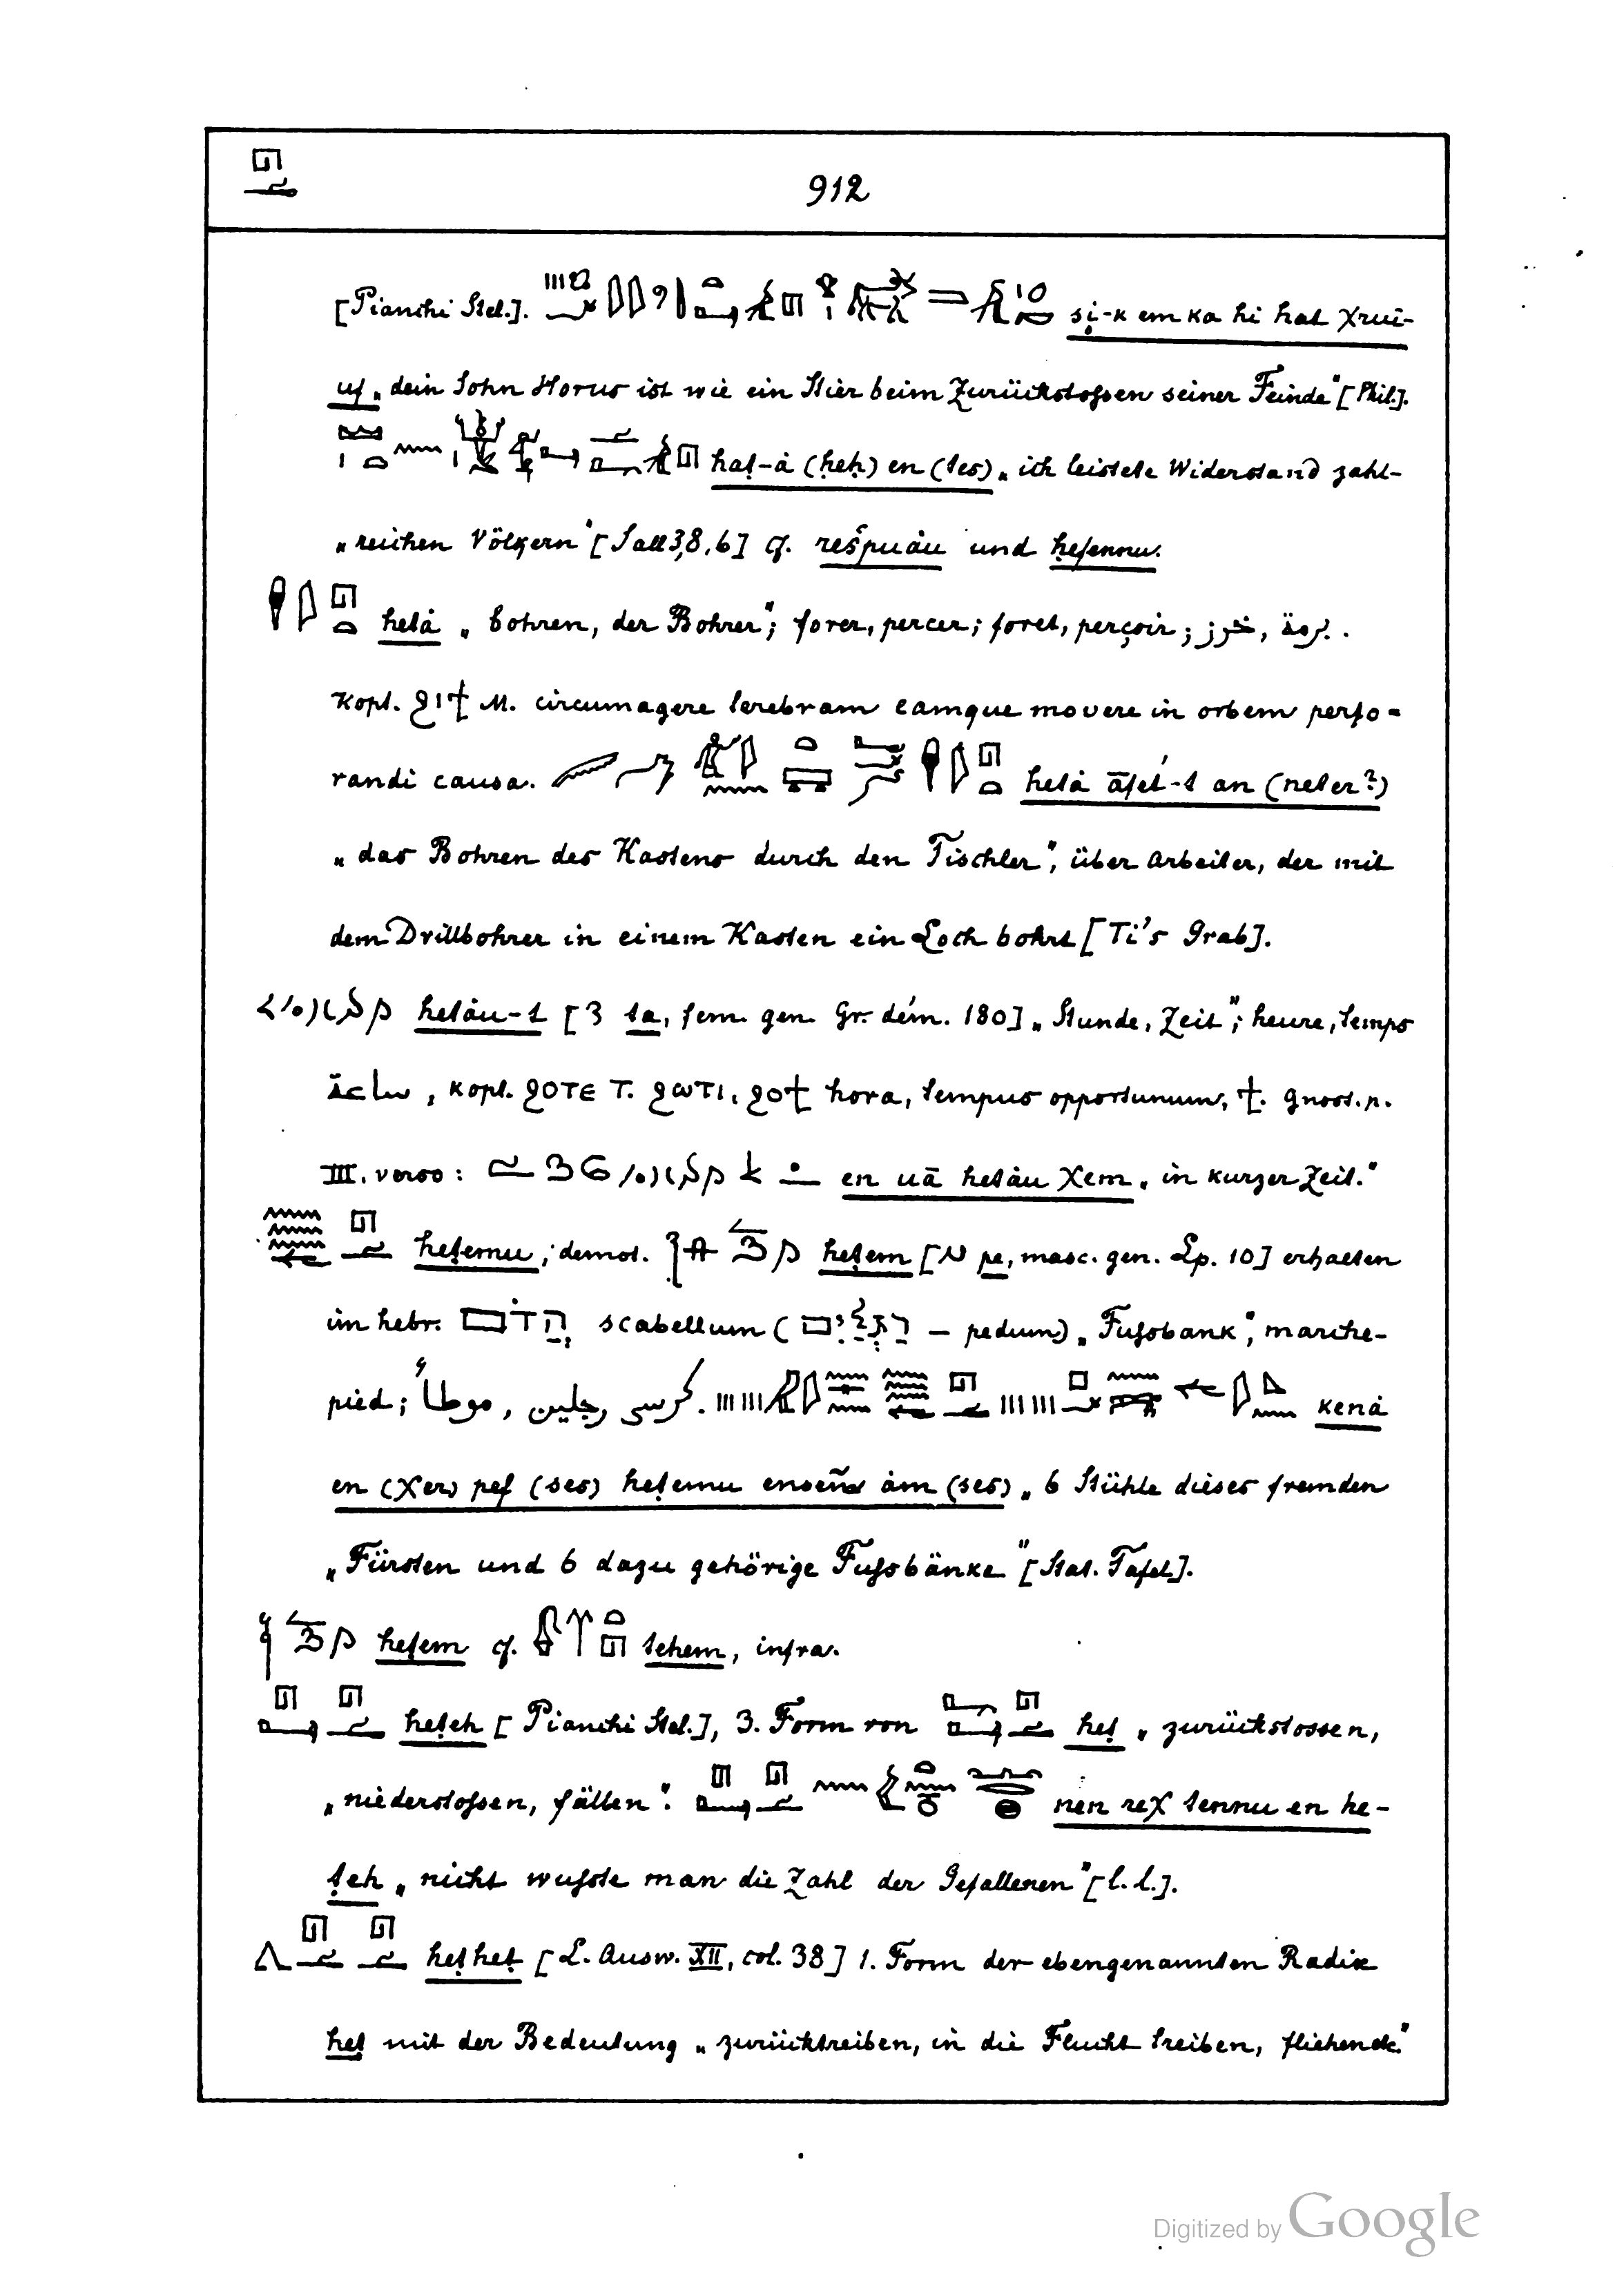 912
[Pianchi Stel.]. si̥-k em ka hi hat χrui-
uf „dein Sohn Horus ist wie ein Stier beim Zurückstossen seiner Feinde“ [Phil.].
haṭ-à (ḥeḥ) en (tes) „ich leistete Widerstand zahl-
„reichen Völkern“ [Sall 3,8,6] cf. rešpuàu und ḥesennu.
hetà „bohren, der Bohrer“; forer, percer; foret, perçoir; خرز,
Kopt. ϩⲓϯ M. circumagere terebram eamque movere in orbem perfo=
randi causa. hetà āfet́-t an (neter?)
„das Bohren des Kastens durch den Tischler“, über Arbeiter, der mit
dem Drillbohrer in einem Kasten ein Loch bohrt [Ti's Grab].
hetàu-t [3 ta, fem. gen. Gr. dém. 180] „Stunde, Zeit“; heure, temps
ساعة, Kopt. ϩⲟⲧⲉ T. ϩⲱⲧⲓ, ϩⲟϯ hora, tempus opportunum, ϯ. gnost. p.
III. verso: en uā hetàu χem „in kurzer Zeit.“
heṭemu; demot. heṭem [pe, masc. gen. Lp. 10] erhalten
im hebr. הֲדֹם scabellum (רַגְלַיִם – pedum) „Fussbank“, marche-
pied; كرسى رجلين, موطأ. kenà
en (χer) pef (ses) heṭemu enseñu àm (ses) „6 Stühle dieses fremden
„Fürsten und 6 dazu gehörige Fussbänke“ [Stat. Tafel].
heṭem cf. tehem, infra.
heṭeh [Pianchi Stel.], 3. Form von heṭ „zurückstossen,
„niederstossen, fällen“. nen reχ tennu en he-
ṭeh „nicht wusste man die Zahl der Gefallenen“ [l. l.].
heṭheṭ [L. Ausw. XII, col. 38] 1. Form der ebengenannten Radix
heṭ mit der Bedeutung „zurücktreiben, in die Flucht treiben, fliehen etc.“
Digitized by Google